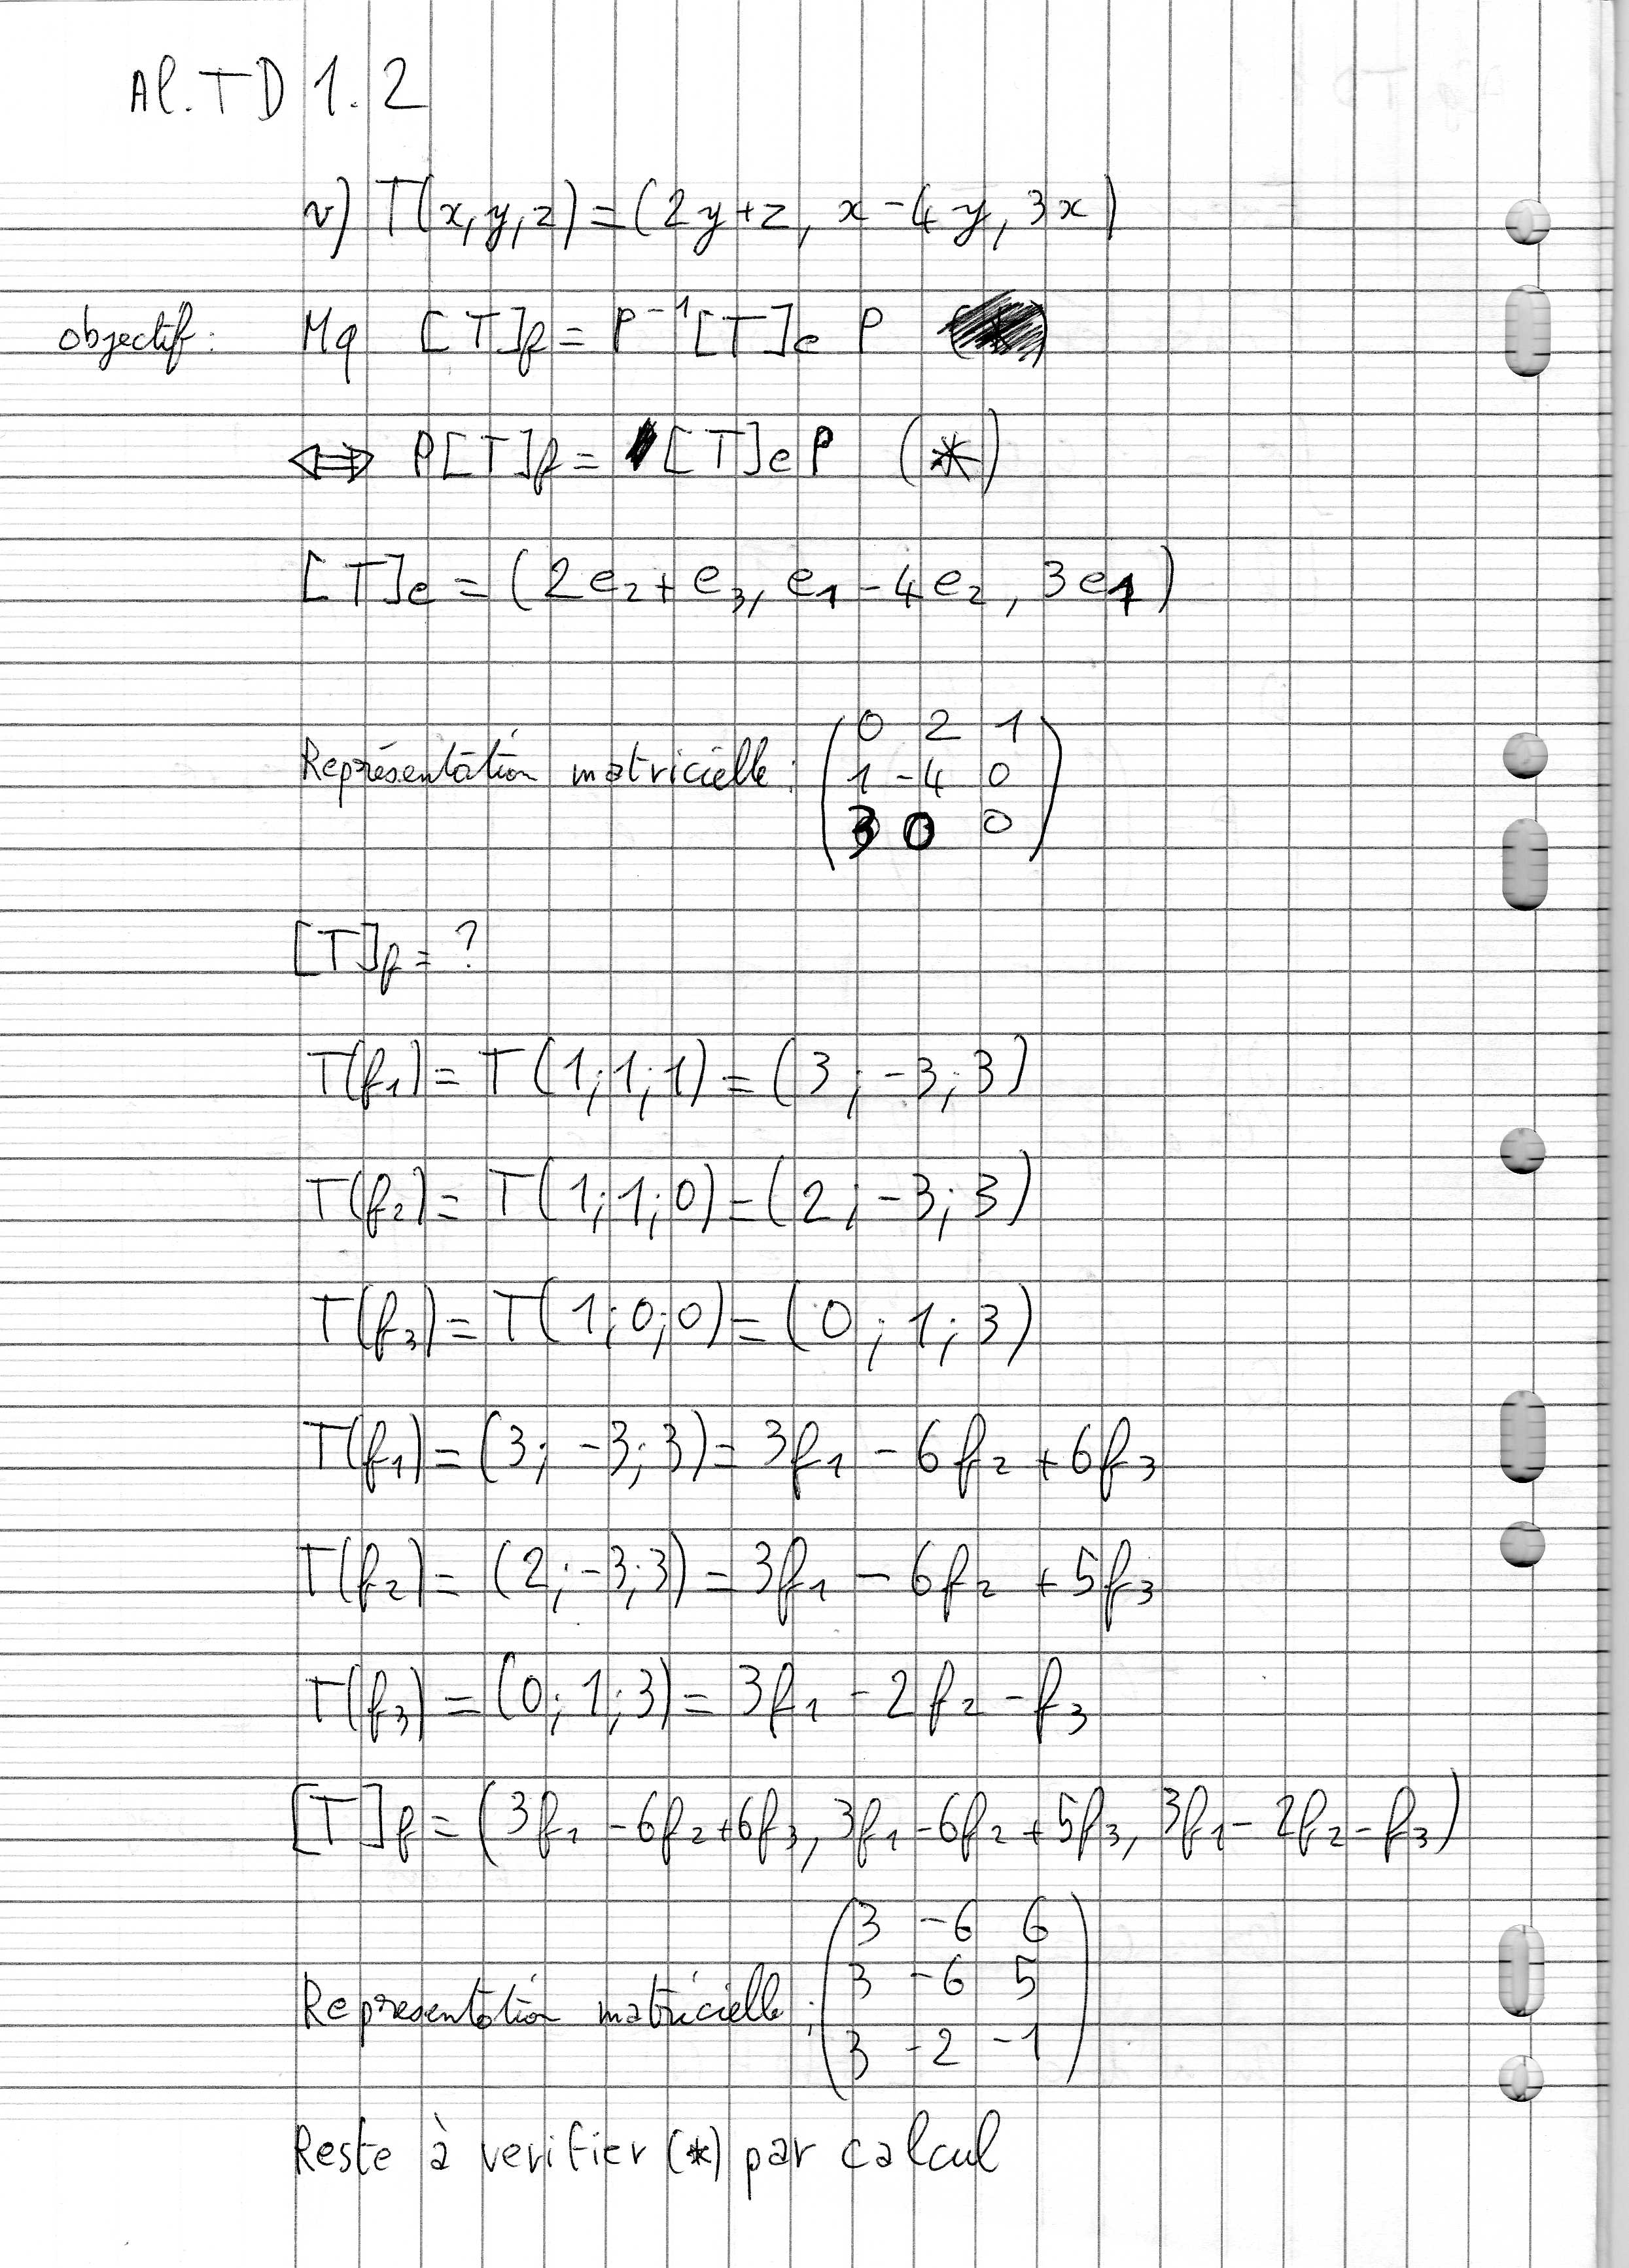 Al. TD 1.2
v) T(x,y,z)=(2y+z, x-4y, 3x)
objectif: Mq [T]f = P⁻¹[T]e P
⇔ P[T]f = [T]e P (*)
[T]e = (2e₂+e₃, e₁-4e₂, 3e₁)
Représentation matricielle : (0 2 1
1 -4 0
3 0 0)
[T]f = ?
T(f₁) = T(1;1;1) = (3;-3;3)
T(f₂) = T(1;1;0) = (2;-3;3)
T(f₃) = T(1;0;0) = (0;1;3)
T(f₁) = (3;-3;3) = 3f₁ - 6f₂ + 6f₃
T(f₂) = (2;-3;3) = 3f₁ - 6f₂ + 5f₃
T(f₃) = (0;1;3) = 3f₁ - 2f₂ - f₃
[T]f = (3f₁ -6f₂+6f₃, 3f₁-6f₂+5f₃, 3f₁-2f₂-f₃)
Representation matricielle : (3 -6 6
3 -6 5
3 -2 -1)
Reste à verifier (*) par calcul